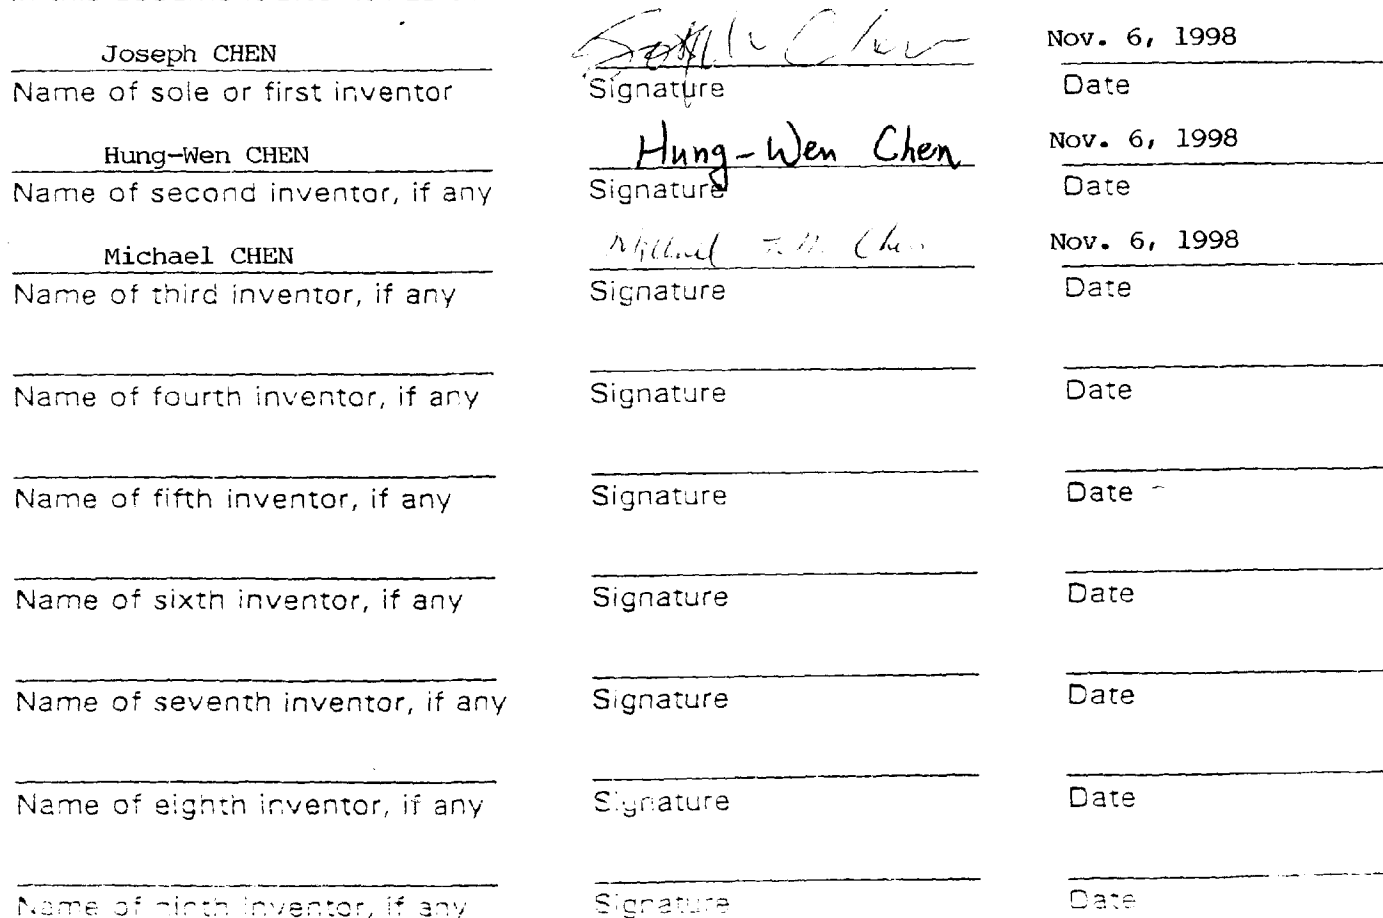 Joseph CHEN Joseph Chen Nov. 6, 1998
Name of sole or first inventor Signature Date
Hung-Wen CHEN Hung-Wen Chen Nov. 6, 1998
Name of second inventor, if any Signature Date
Michael CHEN Michael Chen Nov. 6, 1998
Name of third inventor, if any Signature Date
Name of fourth inventor, if any Signature Date
Name of fifth inventor, if any Signature Date
Name of sixth inventor, if any Signature Date
Name of seventh inventor, if any Signature Date
Name of eighth inventor, if any Signature Date
Name of ninth inventor, if any Signature Date